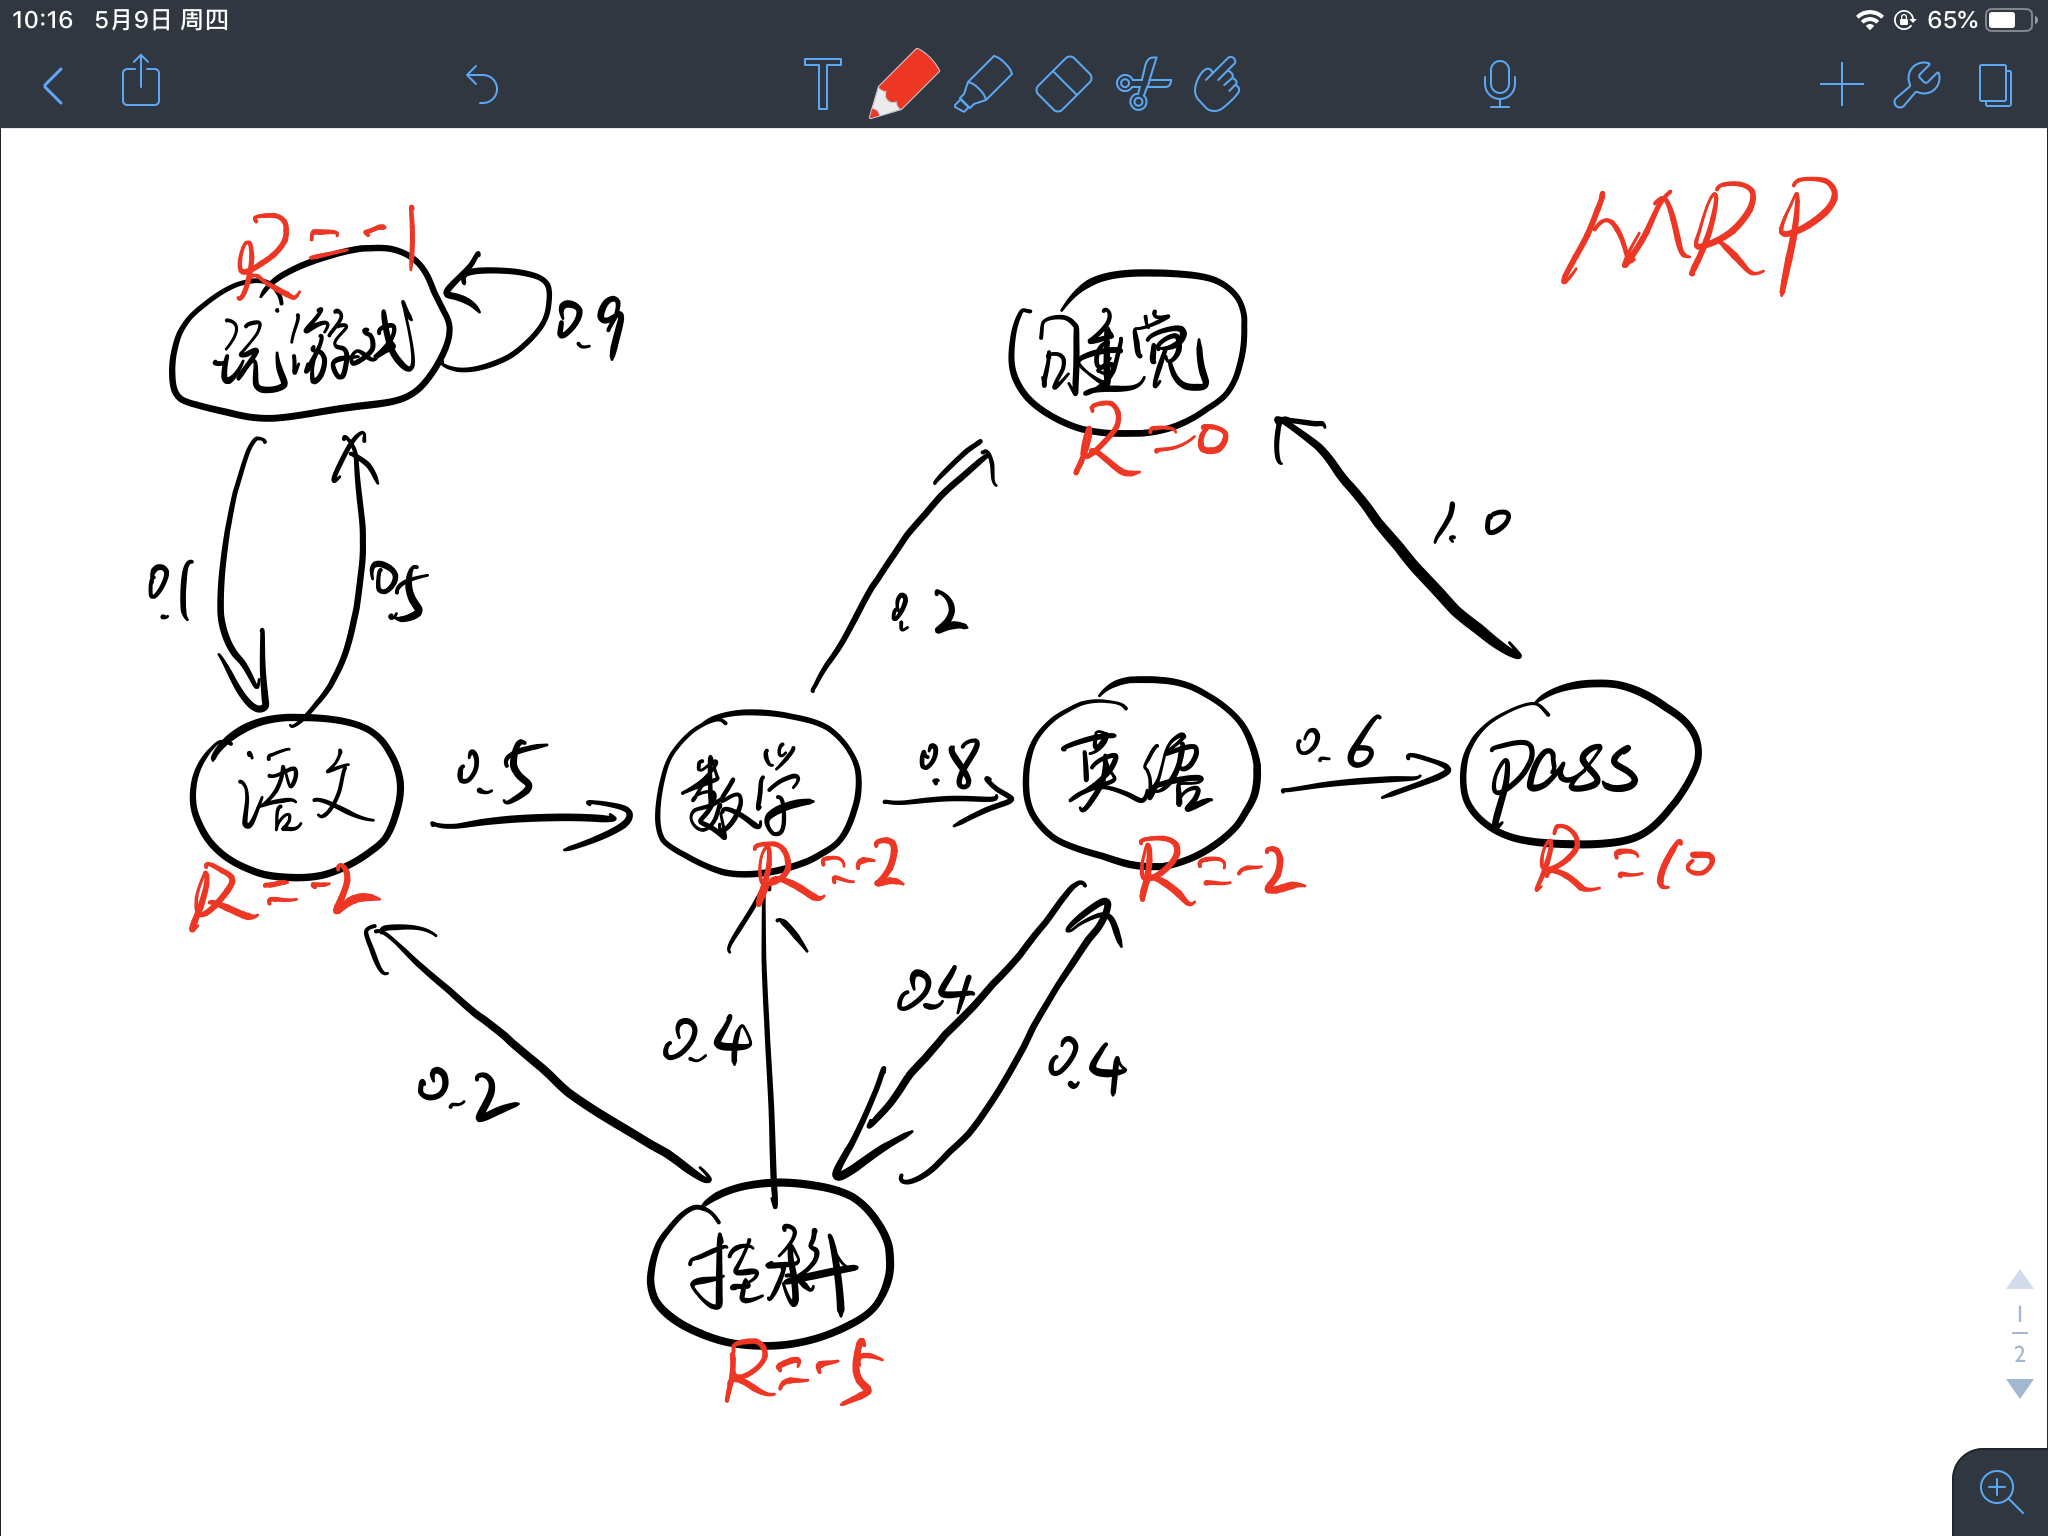 10:16 5月9日 周四
65%
MRP
R=-1
玩游戏
0.9
睡觉
R=0
0.1
0.5
0.2
1.0
语文
R=-2
0.5
数学
R=-2
0.8
英语
R=-2
0.6
pass
R=10
0.2
0.4
0.4
0.4
挂科
R=-5
1
2